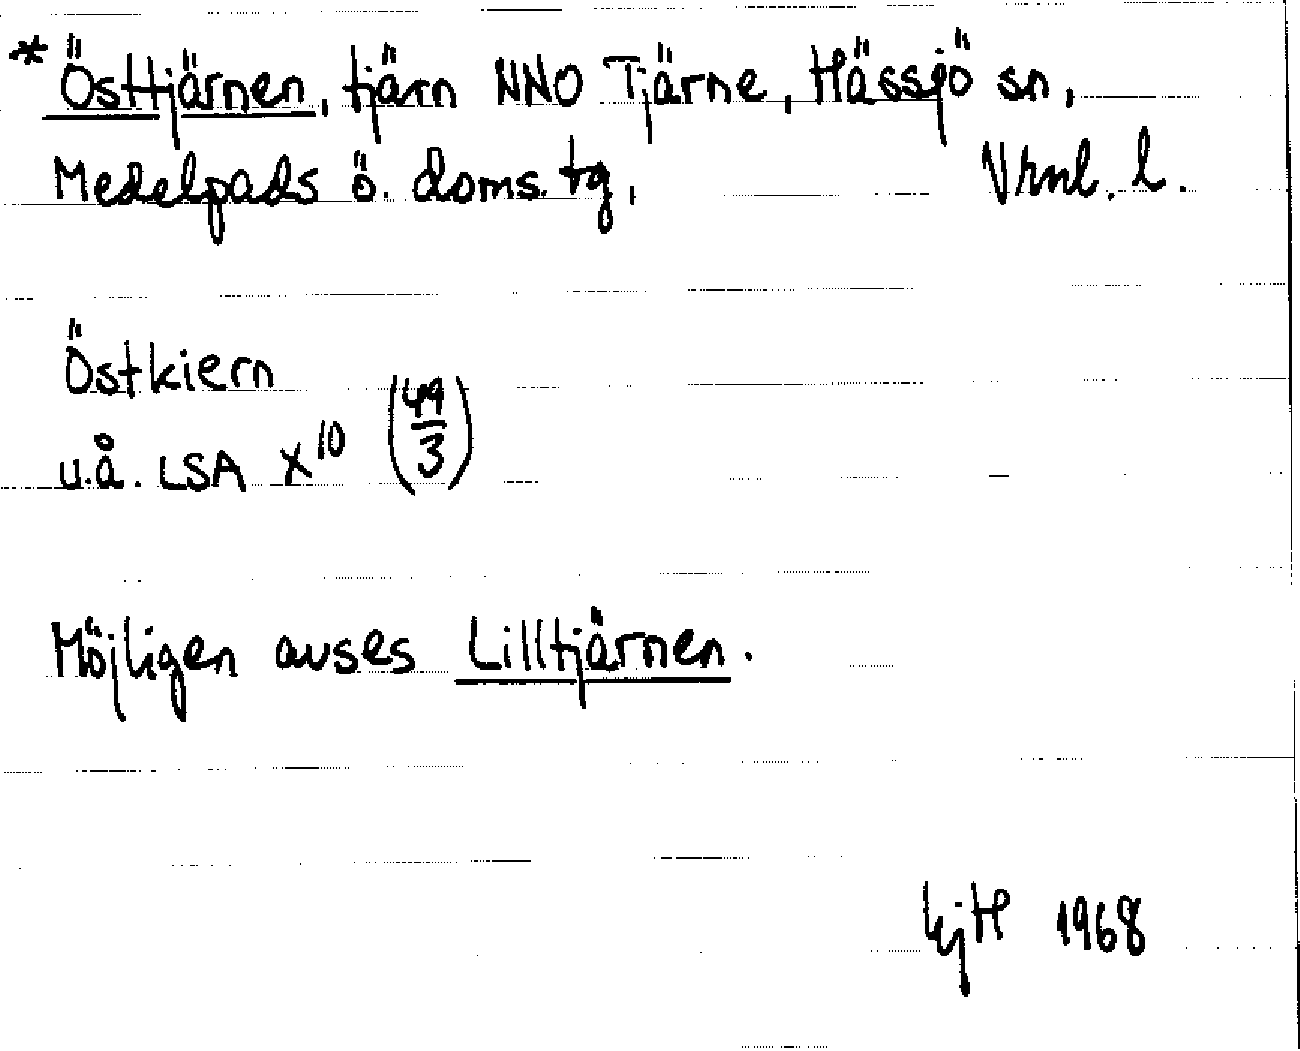 * Östtjärnen, tjärn NNO Tjärne, Hässjö sn,
Medelpads ö. doms. tg. Vrnl. l.
Östkiern
u.å. LSA X¹⁰ (49/3)
Möjligen avses Lilltjärnen.
1968